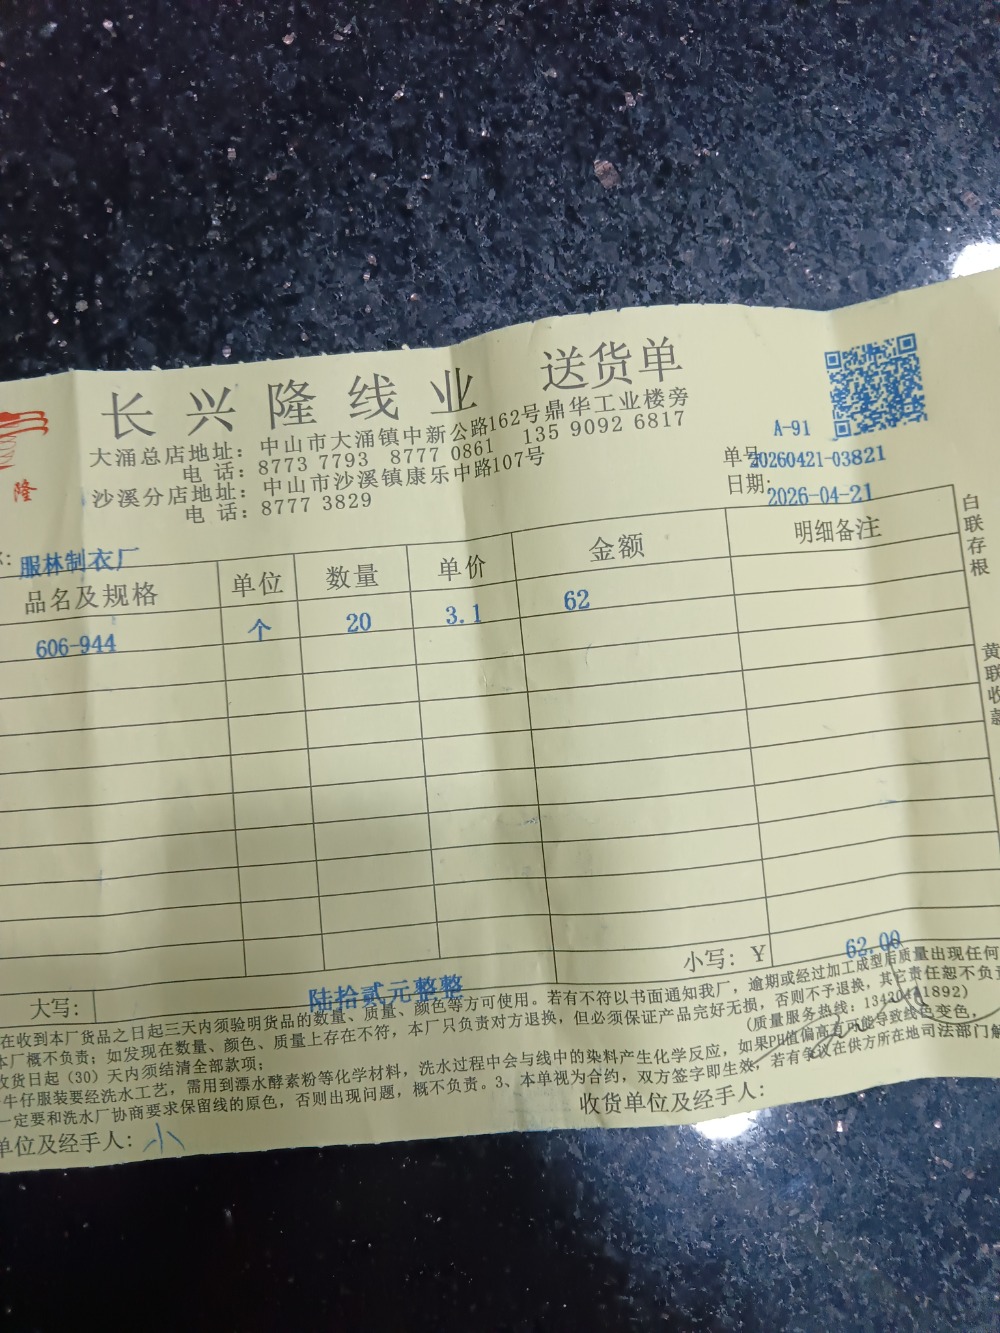 长兴隆线业 送货单
大涌总店地址：中山市大涌镇中新公路162号鼎华工业楼旁
电 话：8773 7793 8777 0861 135 9092 6817
沙溪分店地址：中山市沙溪镇康乐中路107号
电 话：8777 3829
隆
A-91
单号20260421-03821
日期:2026-04-21
服林制衣厂
品名及规格 单位 数量 单价 金额 明细备注
606-944 个 20 3.1 62
白联存根
黄联收款
小写：￥ 62.00
大写： 陆拾贰元整整
在收到本厂货品之日起三天内须验明货品的数量、质量、颜色等方可使用。若有不符以书面通知我厂，逾期或经过加工成型后质量出现任何
本厂概不负责；如发现在数量、颜色、质量上存在不符，本厂只负责对方退换，但必须保证产品完好无损，否则不予退换，其它责任恕不负
收货日起（30）天内须结清全部款项； （质量服务热线：13420411892）
牛仔服装要经洗水工艺，需用到漂水酵素粉等化学材料，洗水过程中会与线中的染料产生化学反应，如果PH值偏高有可能导致线色变色，
一定要和洗水厂协商要求保留线的原色，否则出现问题，概不负责。3、本单视为合约，双方签字即生效，若有争议在供方所在地司法部门解
单位及经手人：小 收货单位及经手人：